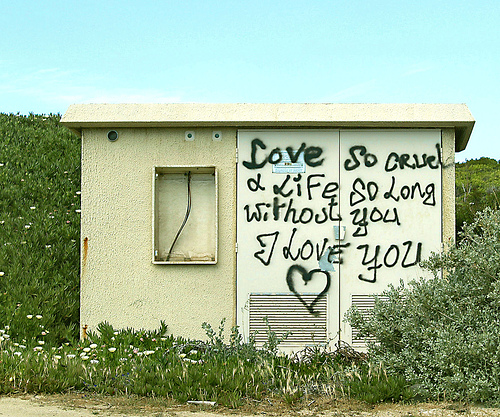 Love so cruel
a Life so Long
without you
I Love you